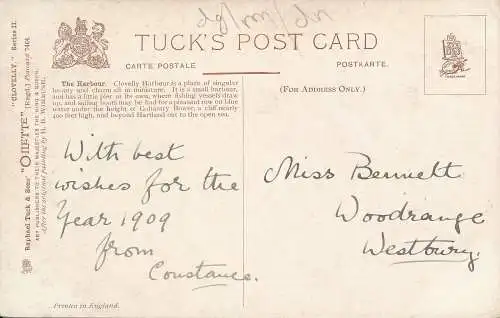 TUCK'S POST CARD
CARTE POSTALE
POSTKARTE.
(FOR ADDRESS ONLY.)
The Harbour. Clovelly Harbour is a place of singular
beauty and charm all in miniature. It is a small harbour,
and has a little pier of its own, where fishing vessels draw
up, and sailing boats may be had for a pleasant row on blue
water under the height of Gallantry Bower, a cliff nearly
400 feet high, and beyond Hartland out to the open sea.
With best
wishes for the
Year 1909
from
Constance.
Miss Bennett
Woodrange
Westbury.
Printed in England.
Raphael Tuck & Sons' "OILETTE" (Regd.) Postcard 7461 "CLOVELLY," Series II.
ART PUBLISHERS TO THEIR MAJESTIES THE KING & QUEEN.
After the original painting by H. B. WIMBUSH.